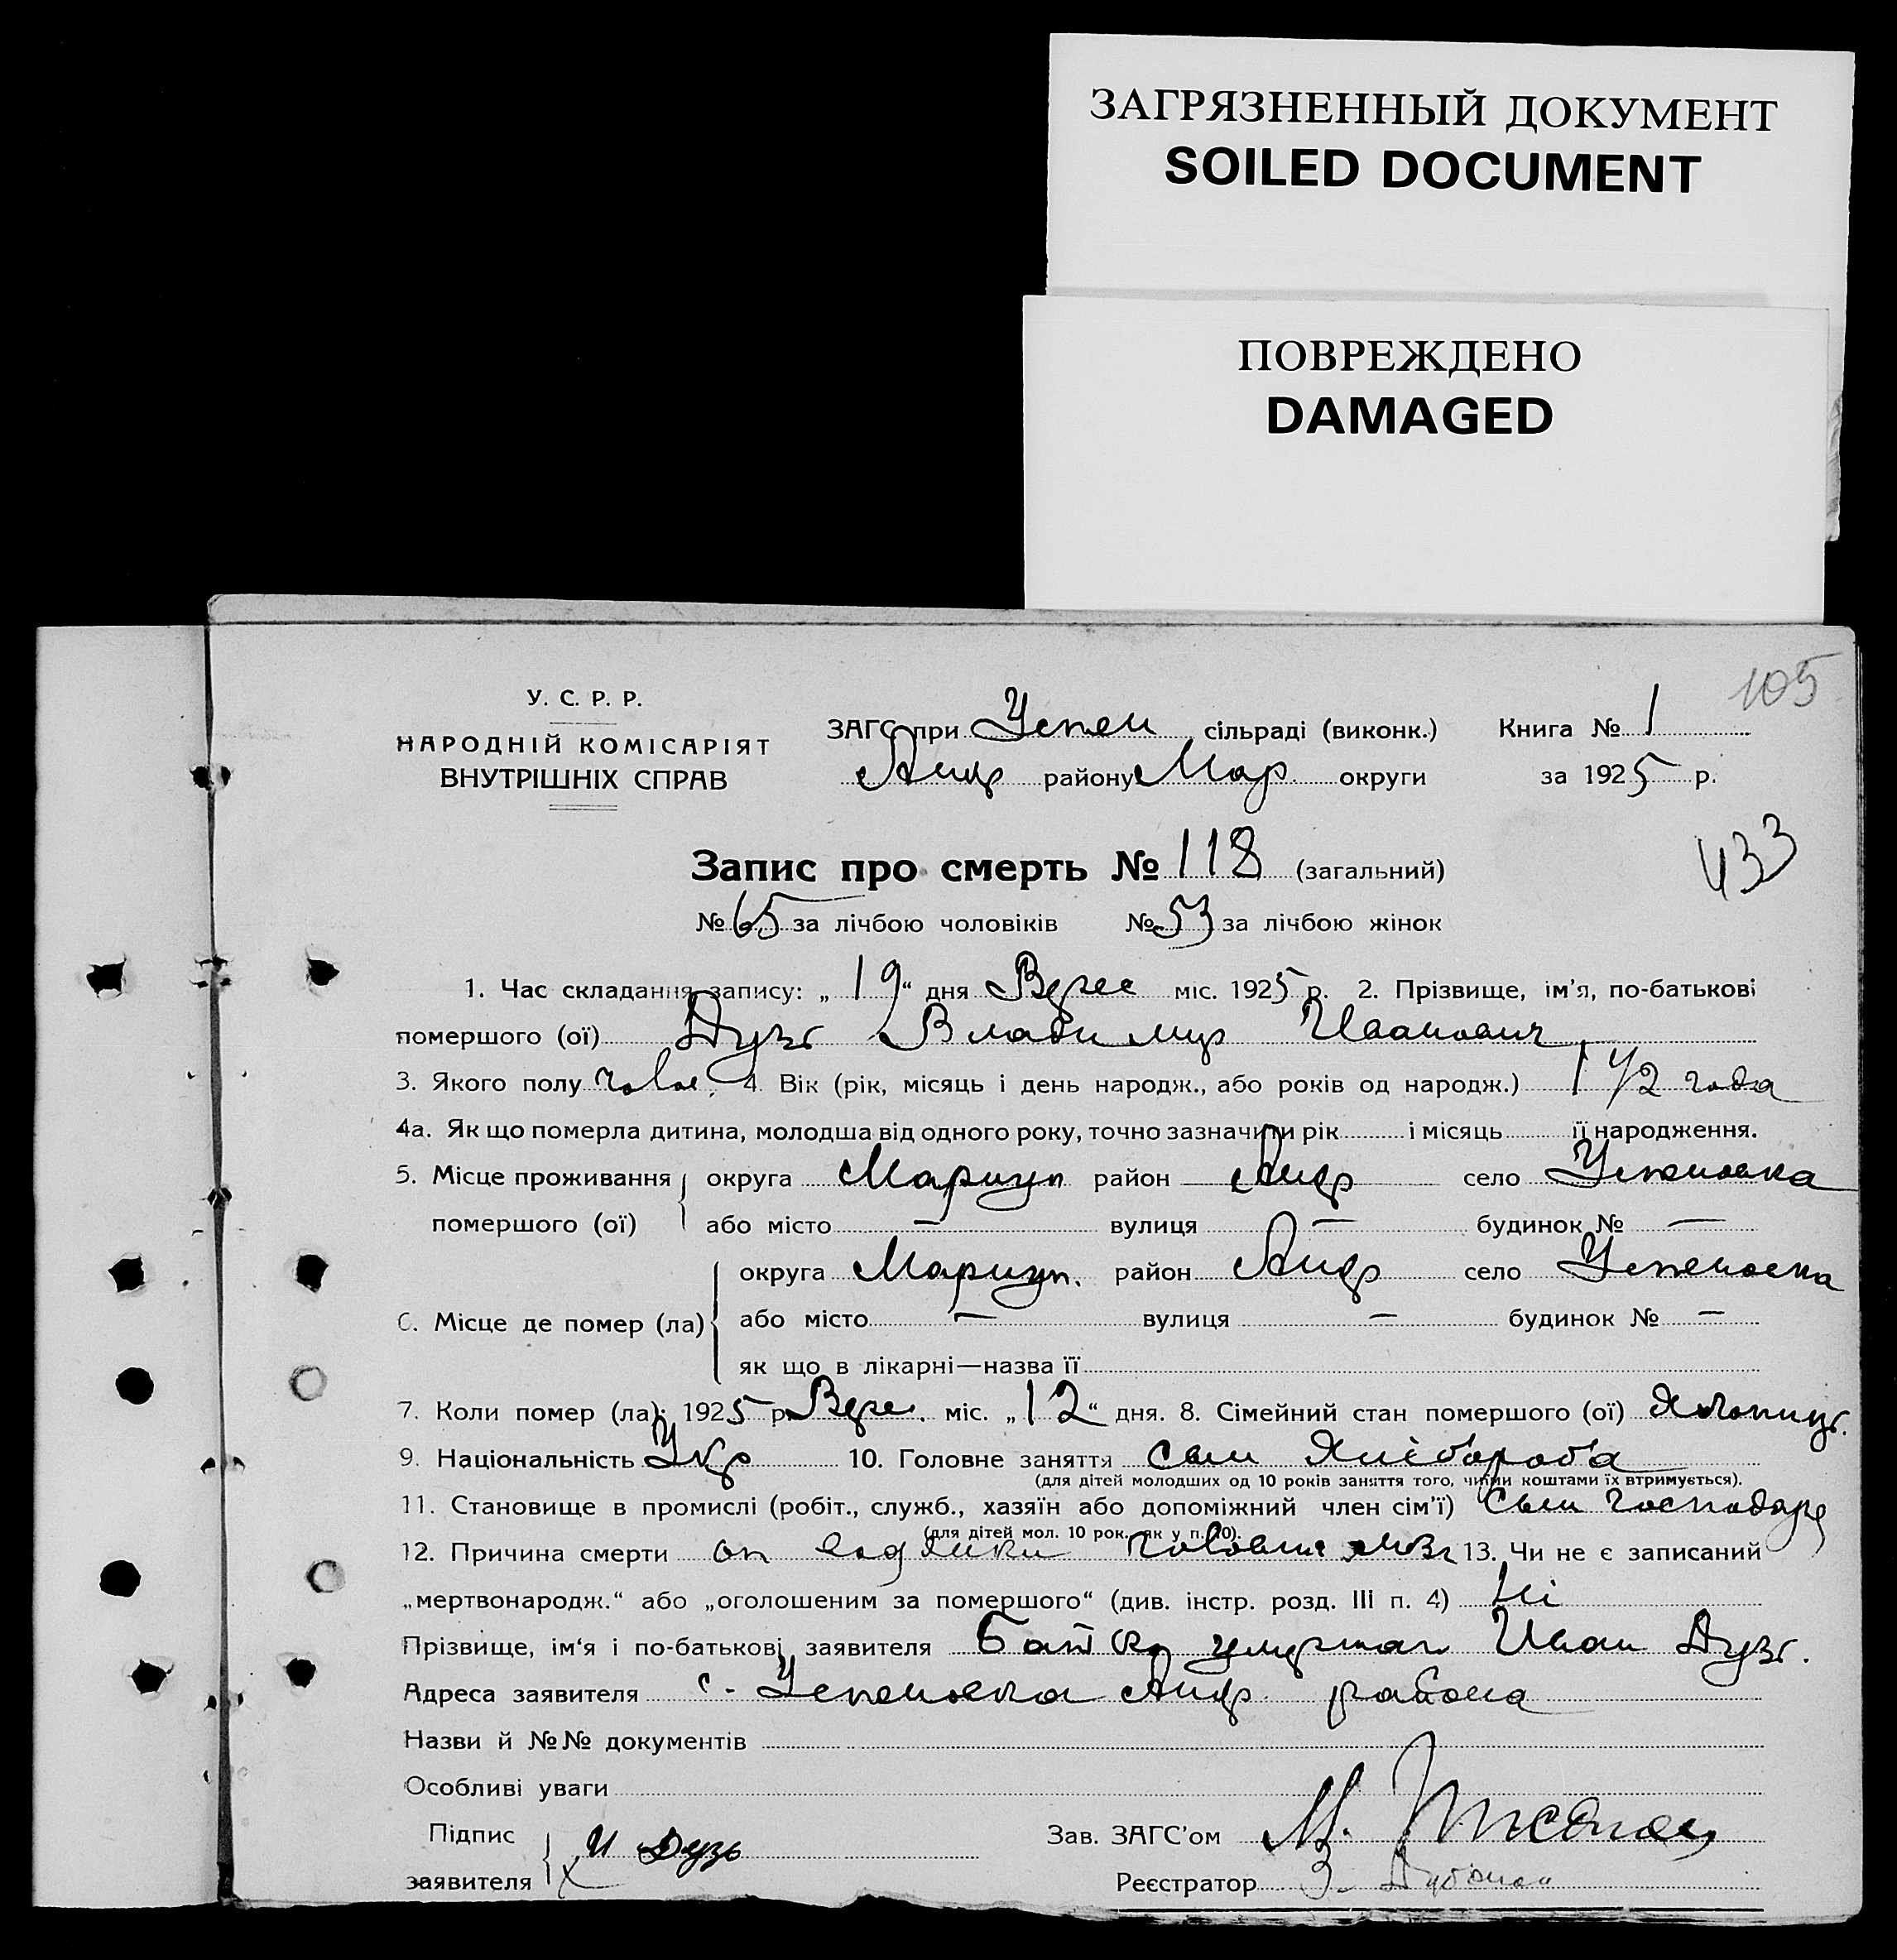 ЗАГРЯЗНЕННЫЙ ДОКУМЕНТ
SOILED DOCUMENT
ПОВРЕЖДЕНО
DAMAGED
105
У. С. Р. Р.
НАРОДНІЙ КОМІСАРІЯТ
ВНУТРІШНІХ СПРАВ
ЗАГС при Успен сільраді (виконк.) Книга № 1
Андр району Мар округи за 1925 р.
433
Запис про смерть № 118 (загальний)
№ 65 за лічбою чоловіків № 53 за лічбою жінок
1. Час складання запису: „ 19 “ дня Верес міс. 1925 р. 2. Прізвище, ім'я, по-батькові
помершого (ої) Дузь Владимир Иванович
3. Якого полу чолов. 4. Вік (рік, місяць і день народж., або років од народж.) 1 1/2 года
4а. Як що померла дитина, молодша від одного року, точно зазначити рік і місяць її народження.
5. Місце проживання помершого (ої) округа Мариуп район Андр село Успеновка
або місто — вулиця — будинок № —
6. Місце де помер (ла) округа Мариуп. район Андр село Успеновка
або місто — вулиця — будинок № —
як що в лікарні—назва її
7. Коли помер (ла): 1925 р. Верес. міс. „ 12 “ дня. 8. Сімейний стан помершого (ої) Хлопець.
9. Національність Укр 10. Головне заняття сын Хлібороба
(для дітей молодших од 10 років заняття того, чиїми коштами їх втримується).
11. Становище в промислі (робіт., служб., хазяїн або допоміжний член сім'ї) сын господаря
(для дітей мол. 10 рок. як у п. 10).
12. Причина смерти от головн 13. Чи не є записаний
„мертвонародж.“ або „оголошеним за помершого“ (див. інстр. розд. III п. 4) Ні
Прізвище, ім'я і по-батькові заявителя Батько Иван Дузь.
Адреса заявителя с. Успеновка Андр района
Назви й №№ документів
Особливі уваги
Підпис заявителя И Дузь
Зав. ЗАГС'ом М.
Реєстратор З.